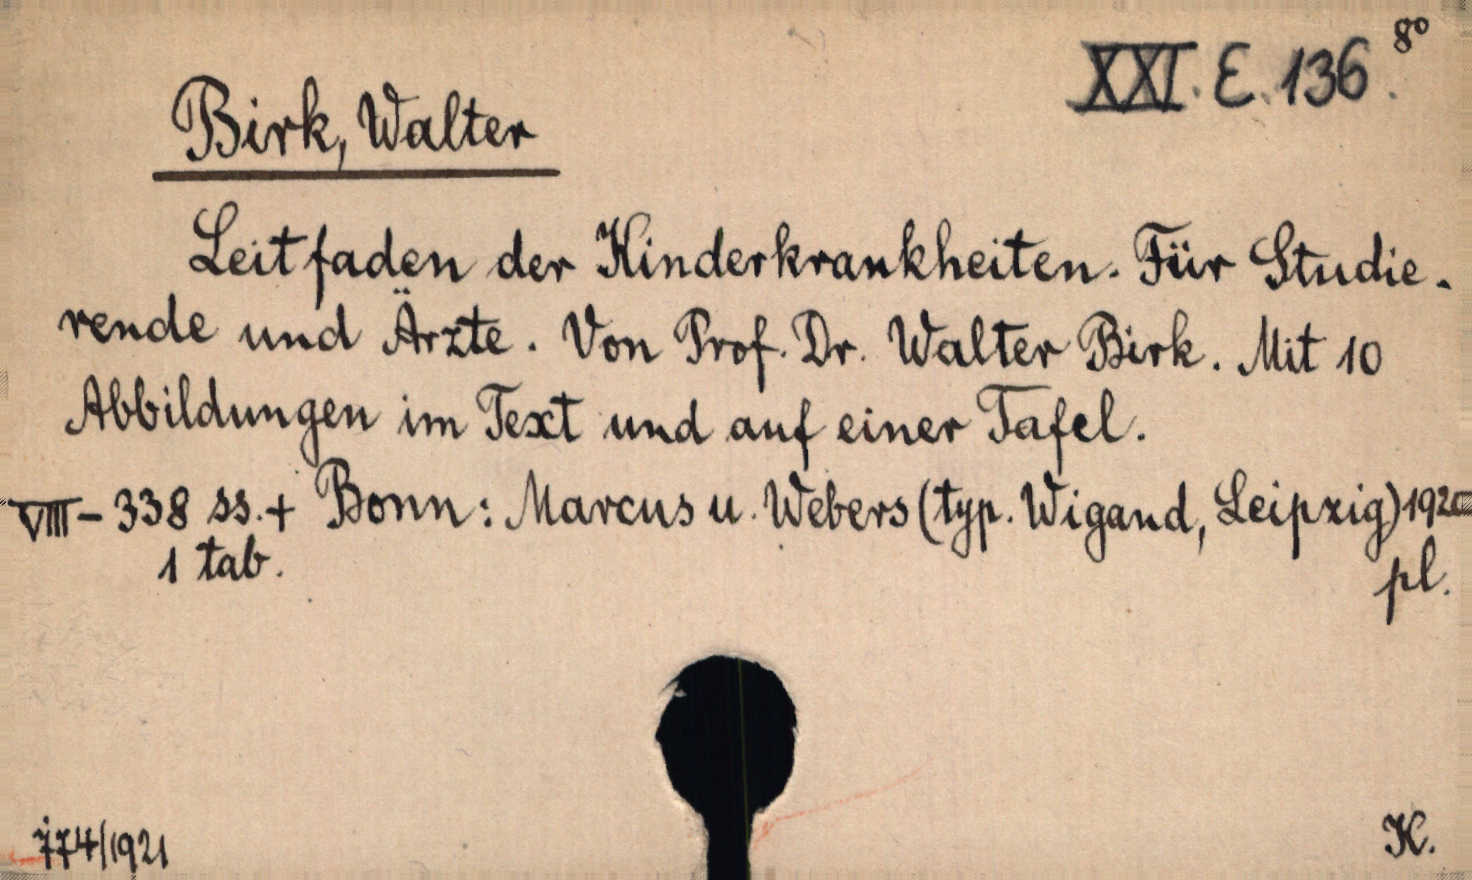 XXI. E. 136. 8°
Birk, Walter
Leitfaden der Kinderkrankheiten. Für Studie-
rende und Ärzte. Von Prof. Dr. Walter Birk. Mit 10
Abbildungen im Text und auf einer Tafel.
VIII - 338 ss. + Bonn: Marcus u. Webers (typ. Wigand, Leipzig) 1920
1 tab. pl.
774/1921 K.